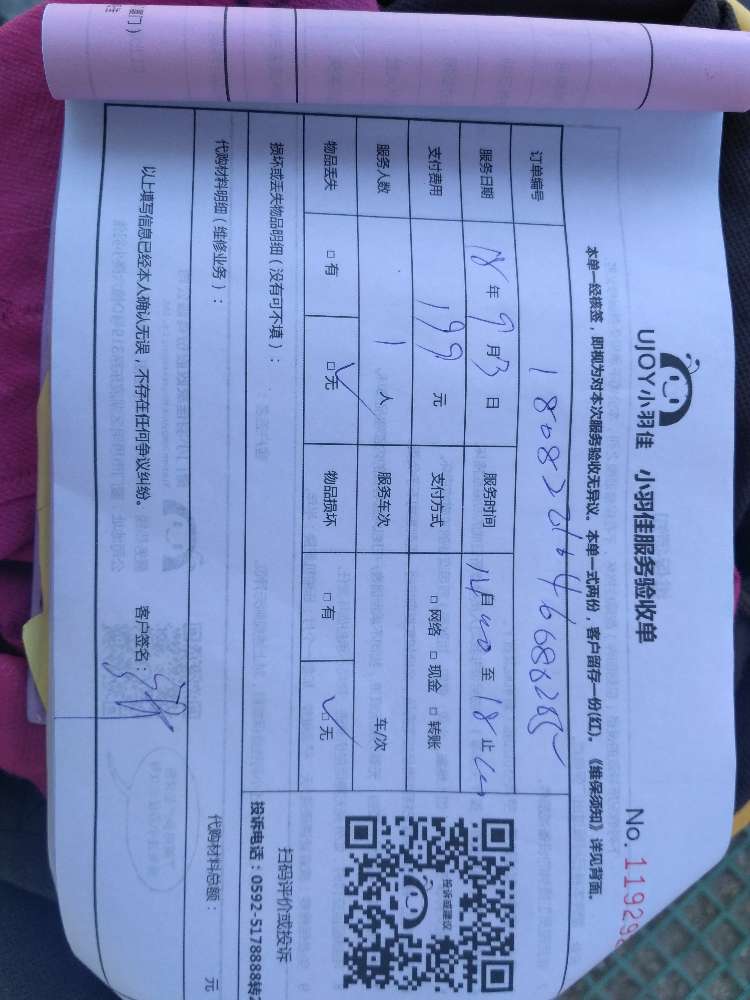 UJOY小羽佳 小羽佳服务验收单
No. 119298
本单一经核签，即视为对本次服务验收无异议。本单一式两份，客户留存一份(红)。《维保须知》详见背面。
订单编号
服务日期 18年9月3日 服务时间 14 40 至 18 止
支付费用 199 元 支付方式 □网络 □现金 □转账
服务人数 1 人 服务车次 车/次
物品丢失 □有 □无 物品损坏 □有 □无
损坏或丢失物品明细（没有可不填）：
代购材料明细（维修业务）：
代购材料总额： 元
投诉或建议
扫码评价或投诉
投诉电话：0592-5178888转
以上填写信息已经本人确认无误，不存在任何争议纠纷。
客户签名：